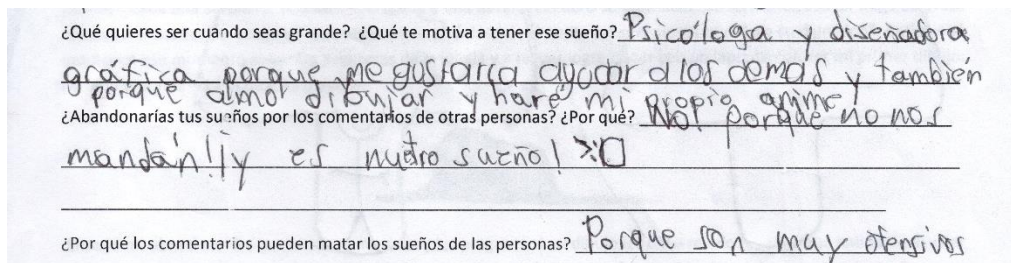 ¿Qué quieres ser cuando seas grande? ¿Qué te motiva a tener ese sueño? Psicóloga y diseñadora
gráfica porque me gustaría ayudar a los demás y también
porque amo dibujar y haré mi propio anime!
¿Abandonarías tus sueños por los comentarios de otras personas? ¿Por qué? No! porque no nos
mandán!¡y es nuetro sueño! >:O
¿Por qué los comentarios pueden matar los sueños de las personas? Porque son muy ofensivos